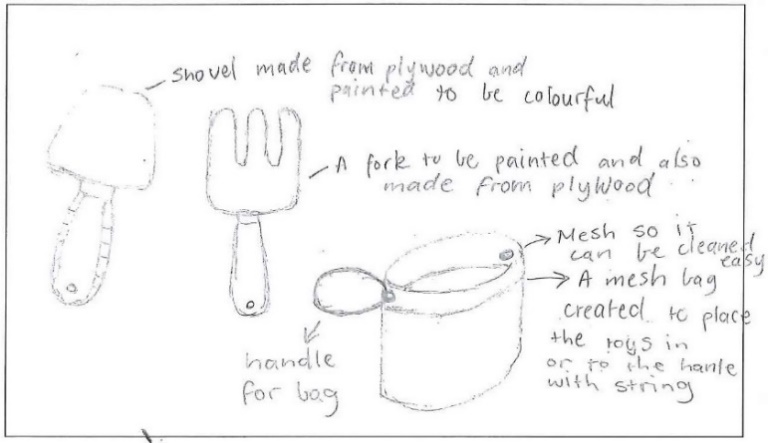 shovel made from plywood and
painted to be colourful
A fork to be painted and also
made from plywood
Mesh so it
can be cleaned
easy
A mesh bag
created to place
the toys in
or to the hanle
with string
handle
for bag